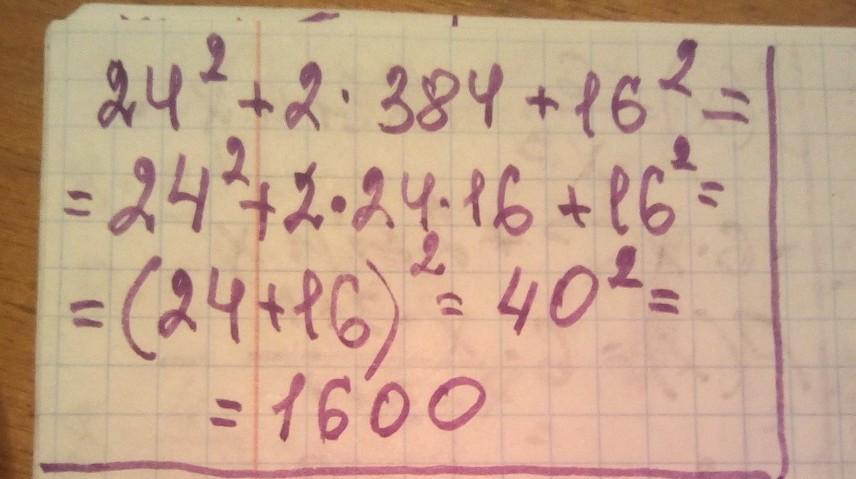 24² + 2 · 384 + 16² =
= 24² + 2 · 24 · 16 + 16² =
= (24 + 16)² = 40² =
= 1600